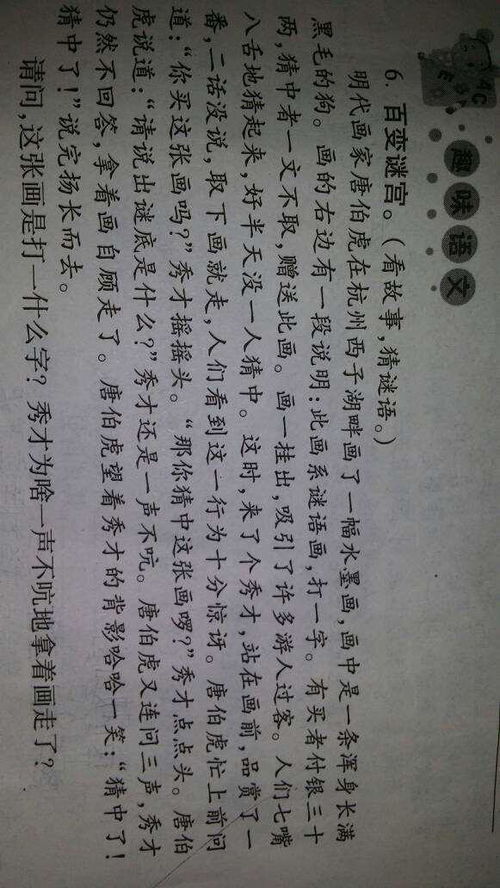 趣味语文
6. 百变谜宫。(看故事,猜谜语。)
明代画家唐伯虎在杭州西子湖畔画了一幅水墨画,画中是一条浑身长满
黑毛的狗。画的右边有一段说明:此画系谜语画,打一字。有买者付银三十
两,猜中者一文不取,赠送此画。画一挂出,吸引了许多游人过客。人们七嘴
八舌地猜起来,好半天没一人猜中。这时,来了个秀才,站在画前,品赏了一
番,二话没说,取下画就走,人们看到这一行为十分惊讶。唐伯虎忙上前问
道:“你买这张画吗?”秀才摇摇头。“那你猜中这张画啰?”秀才点点头。唐伯
虎说道:“请说出谜底是什么?”秀才还是一声不吭。唐伯虎又连问三声,秀才
仍然不回答,拿着画自顾走了。唐伯虎望着秀才的背影哈哈一笑:“猜中了!
猜中了!”说完扬长而去。
请问,这张画是打一什么字?秀才为啥一声不吭地拿着画走了?